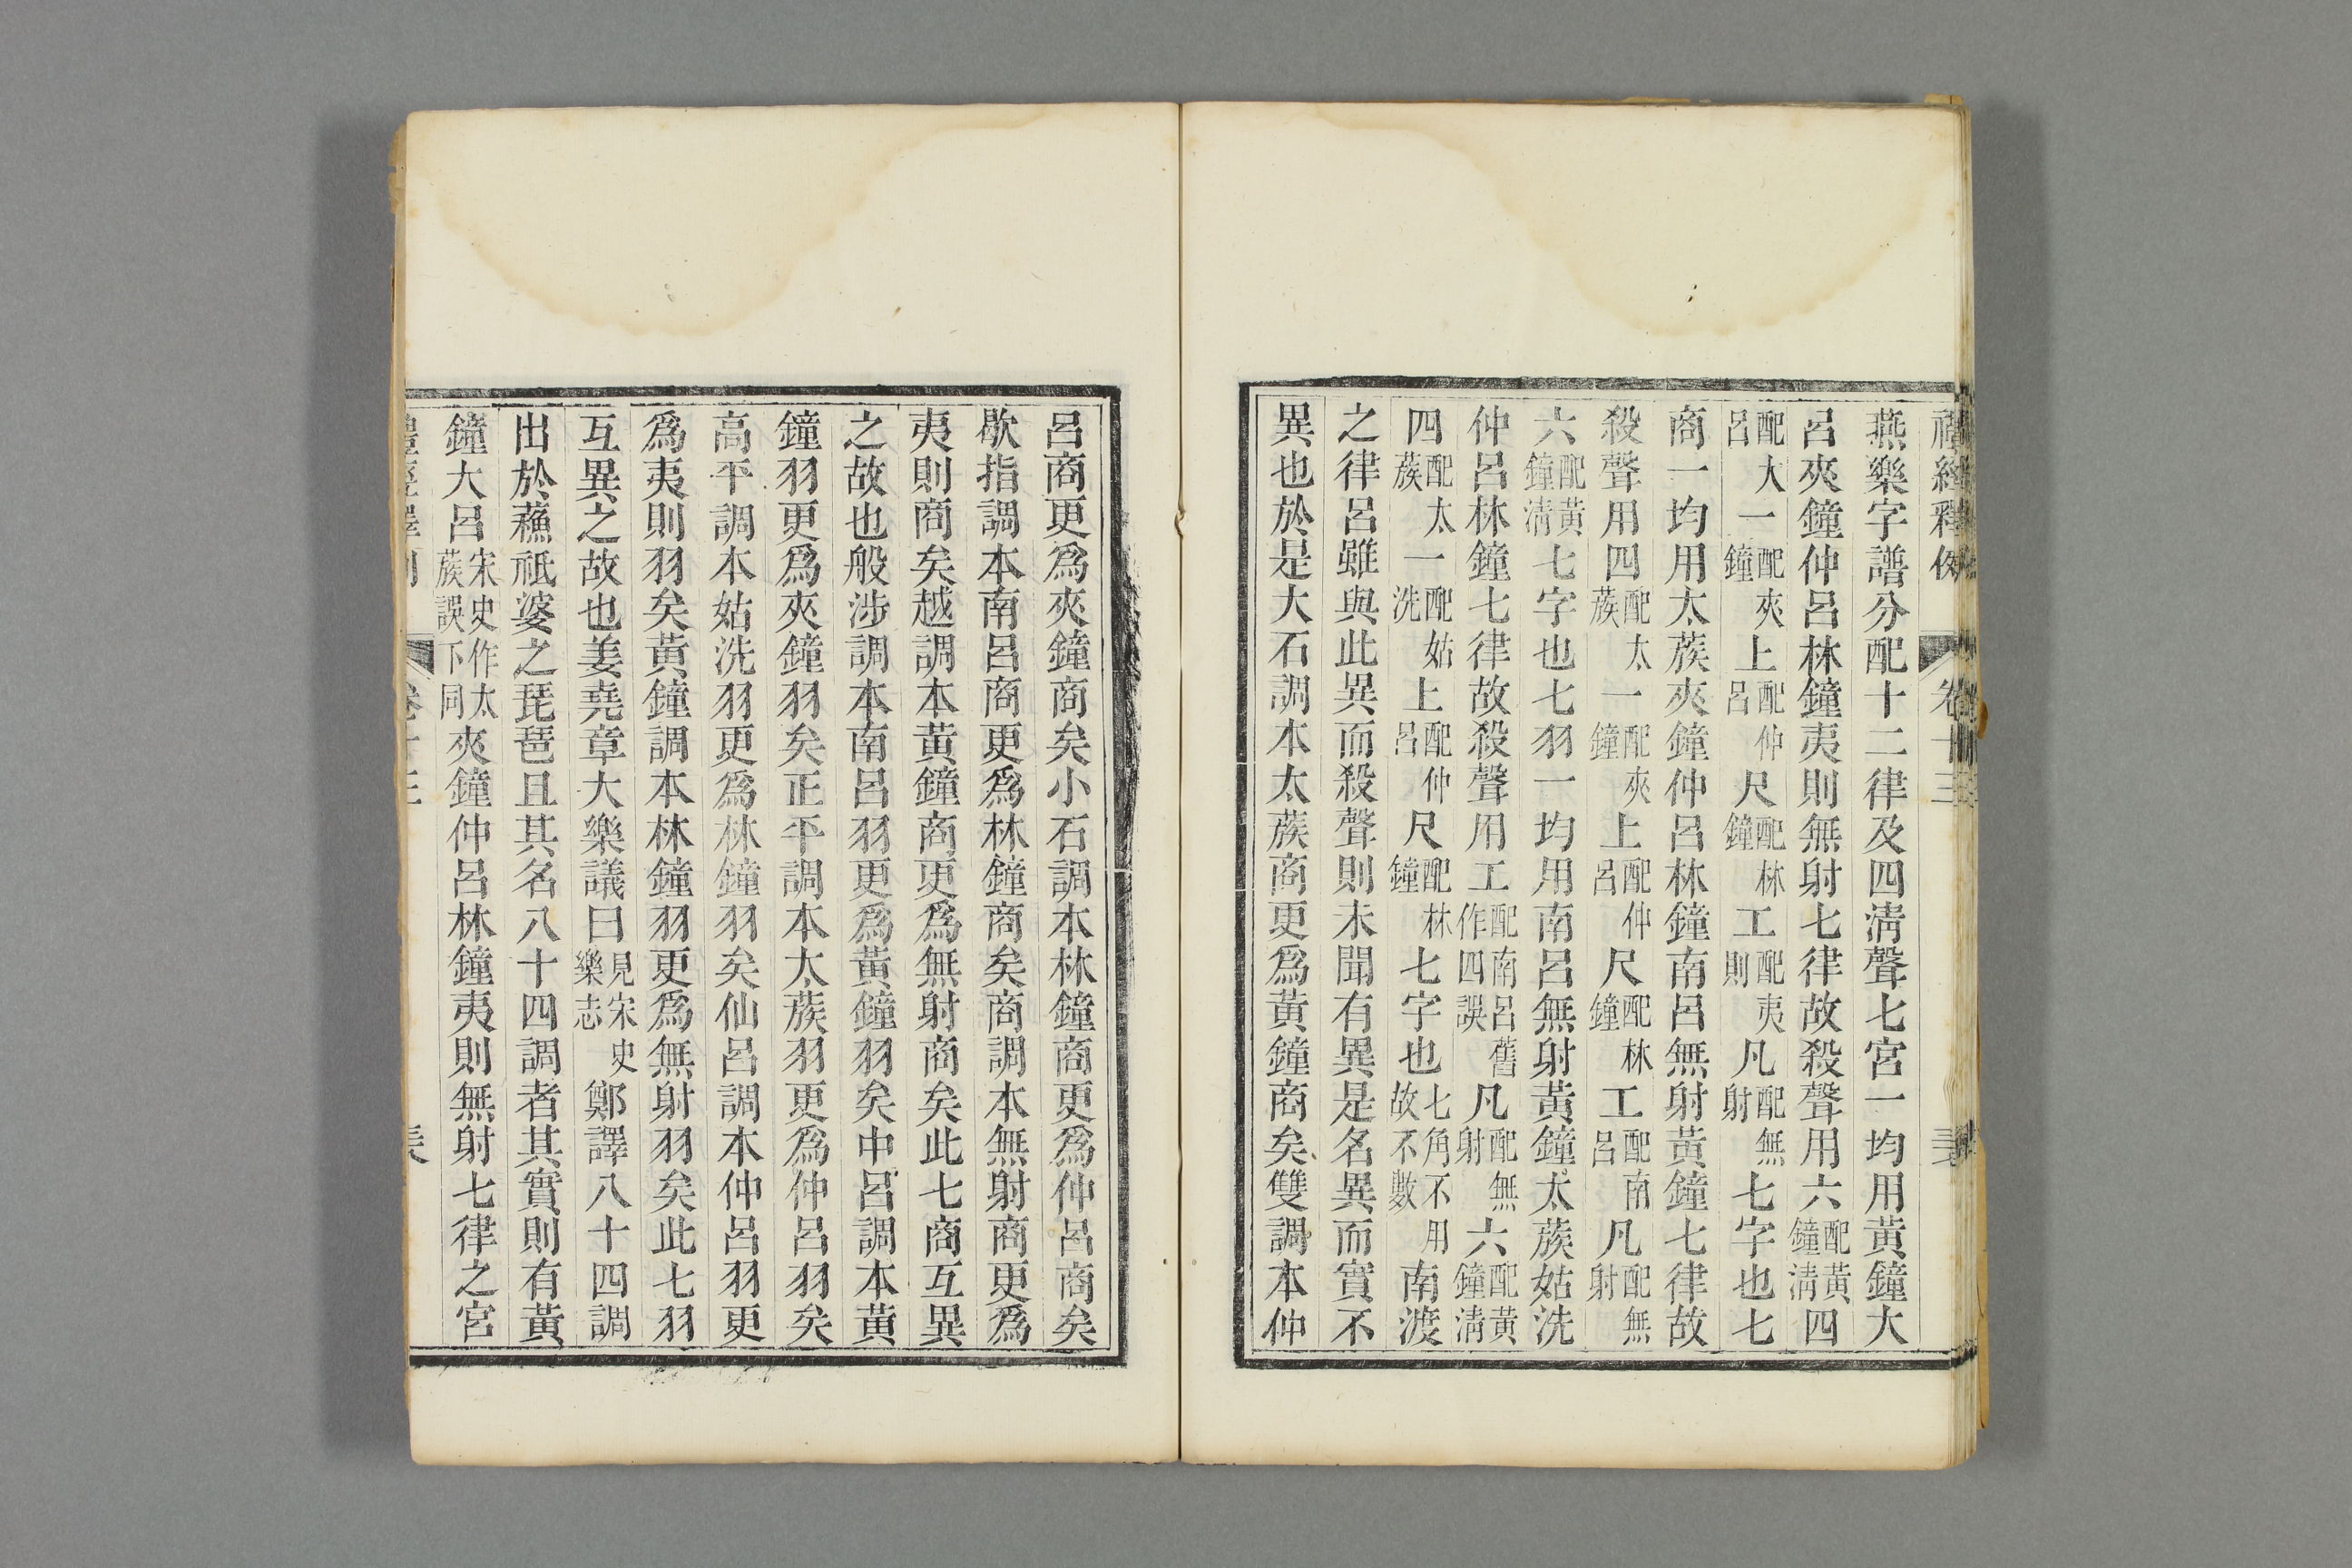 禮經釋例
卷十三
燕樂字譜分配十二律及四淸聲七宮一均用黃鐘大
呂夾鐘仲呂林鐘夷則無射七律故殺聲用六配黃鐘淸四
配大呂一配夾鐘上配仲呂尺配林鐘工配夷則凡配無射七字也七
商一均用太蔟夾鐘仲呂林鐘南呂無射黃鐘七律故
殺聲用四配太蔟一配夾鐘上配仲呂尺配林鐘工配南呂凡配無射
六配黃鐘淸七字也七羽一均用南呂無射黃鐘太蔟姑洗
仲呂林鐘七律故殺聲用工配南呂舊作四誤凡配無射六配黃鐘淸
四配太蔟一配姑洗上配仲呂尺配林鐘七字也七角不用故不數南渡
之律呂雖與此異而殺聲則未聞有異是名異而實不
異也於是大石調本太蔟商更爲黃鐘商矣雙調本仲
呂商更爲夾鐘商矣小石調本林鐘商更爲仲呂商矣
歇指調本南呂商更爲林鐘商矣商調本無射商更爲
夷則商矣越調本黃鐘商更爲無射商矣此七商互異
之故也般涉調本南呂羽更爲黃鐘羽矣中呂調本黃
鐘羽更爲夾鐘羽矣正平調本太蔟羽更爲仲呂羽矣
高平調本姑洗羽更爲林鐘羽矣仙呂調本仲呂羽更
爲夷則羽矣黃鐘調本林鐘羽更爲無射羽矣此七羽
互異之故也姜堯章大樂議曰見宋史樂志鄭譯八十四調
出於蘓祗婆之琵琶且其名八十四調者其實則有黃
鐘大呂宋史作太蔟誤下同夾鐘仲呂林鐘夷則無射七律之宮